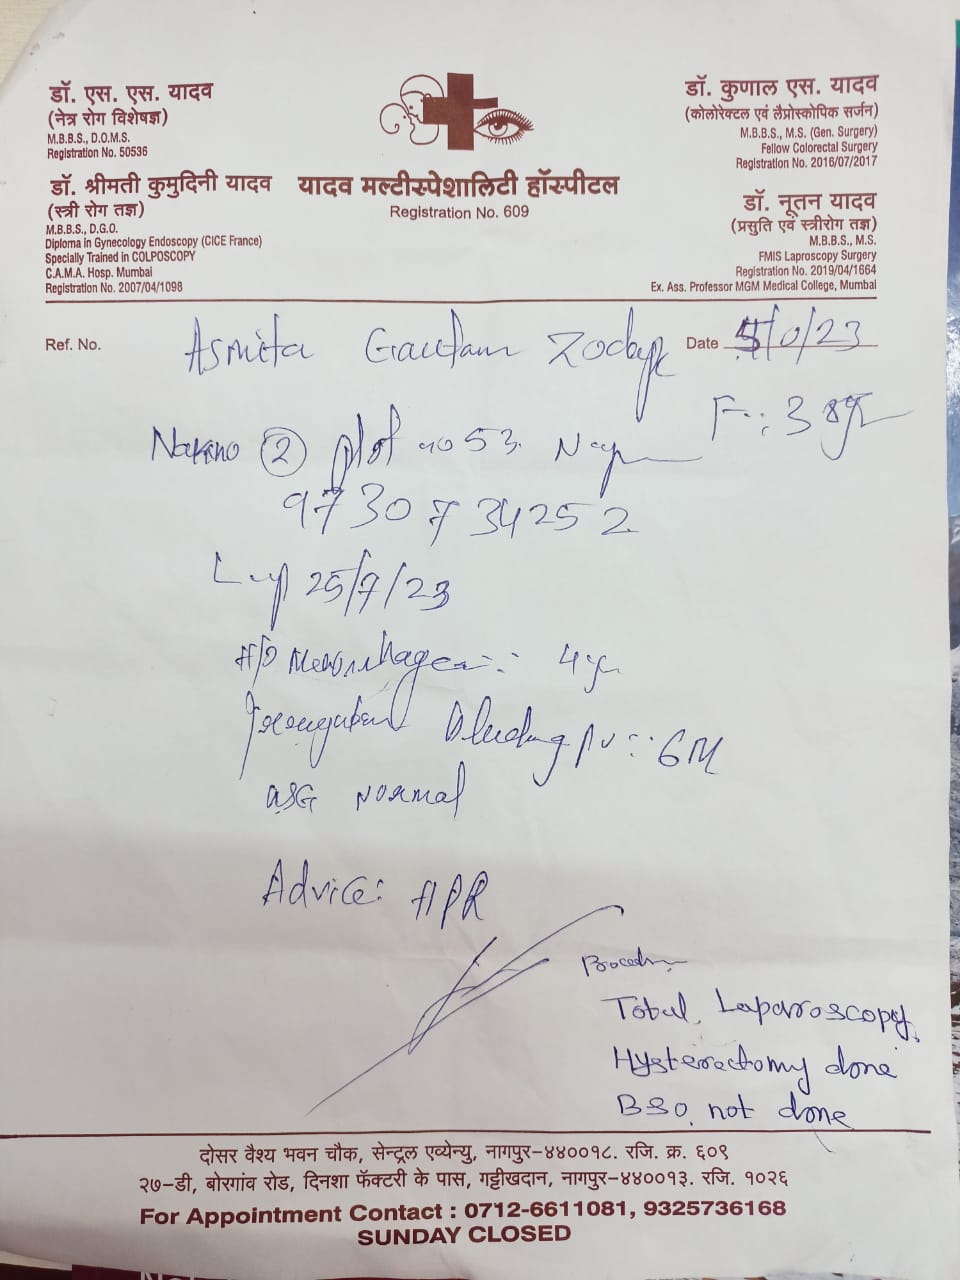 डॉ. एस. एस. यादव
(नेत्र रोग विशेषज्ञ)
M.B.B.S., D.O.M.S.
Registration No. 50536
डॉ. श्रीमती कुमुदिनी यादव
(स्त्री रोग तज्ञ)
M.B.B.S., D.G.O.
Diploma in Gynecology Endoscopy (CICE France)
Specially Trained in COLPOSCOPY
C.A.M.A. Hosp. Mumbai
Registration No. 2007/04/1098
यादव मल्टीस्पेशालिटी हॉस्पीटल
Registration No. 609
डॉ. कुणाल एस. यादव
(कोलोरेक्टल एवं लॅप्रोस्कोपिक सर्जन)
M.B.B.S., M.S. (Gen. Surgery)
Fellow Colorectal Surgery
Registration No. 2016/07/2017
डॉ. नूतन यादव
(प्रसुति एवं स्त्रीरोग तज्ञ)
M.B.B.S., M.S.
FMIS Laproscopy Surgery
Registration No. 2019/04/1664
Ex. Ass. Professor MGM Medical College, Mumbai
Ref. No.
Asmita Gautam
Date
F
2 plot no 53
9730734252
25/7/23
4
bleeding pv 6M
USG normal
Advice:
Total Laparoscopy
Hysterectomy done
BSO not done
दोसर वैश्य भवन चौक, सेन्ट्रल एव्येन्यु, नागपुर-४४००१८. रजि. क्र. ६०९
२७-डी, बोरगांव रोड, दिनशा फॅक्टरी के पास, गट्टीखदान, नागपुर-४४००१३. रजि. १०२६
For Appointment Contact : 0712-6611081, 9325736168
SUNDAY CLOSED